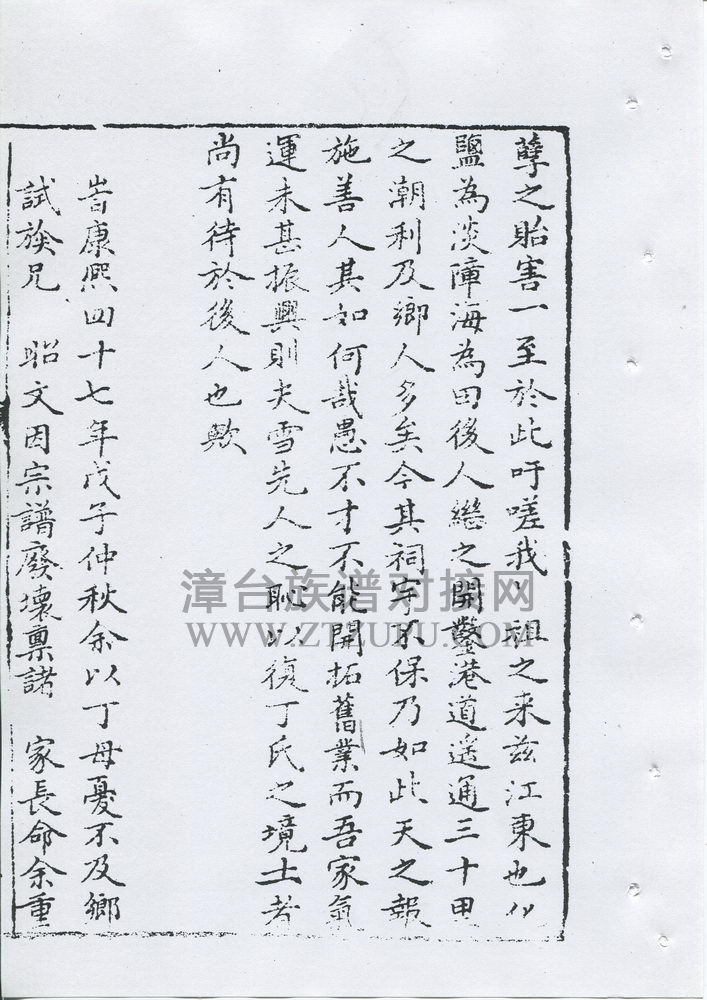 孽之貽害一至於此吁嗟我 祖之来兹江東也以
鹽為淡障海為田後人繼之開鑿港道遥通三十里
之潮利及鄉人多矣今其祠宇不保乃如此天之報
施善人其如何哉愚不才不能開拓舊業而吾家氣
運未甚振興則夫雪先人之恥以復丁氏之境土者
尚有待於後人也歟
旹康熙四十七年戊子仲秋余以丁母憂不及鄉
試族兄 昭文因宗譜廢壞稟諸 家長命余重
漳台族谱对接网
WWW.ZTZUPU.COM